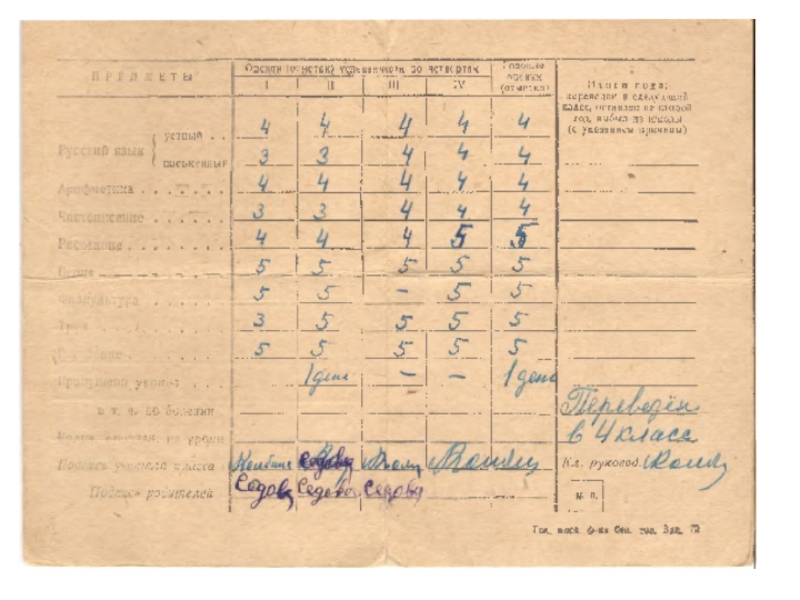 ПРЕДМЕТЫ
Оценки по четвертям
Годовые оценки (отметки)
I II III IV
Итоги года:
переведен в следующий
класс, оставлен на второй
год, выбыл из школы
(с указанием причины)
Русский язык { устный . . 4 4 4 4 4
письменный 3 3 4 4 4
Арифметика . . . . . 4 4 4 4 4
Чистописание . . . . 3 3 4 4 4
Рисование . . . . . . 4 4 4 5 5
Пение 5 5 5 5 5
Физкультура . . . . . 5 5 – 5 5
Труд . . . . . . . 3 5 5 5 5
5 5 5 5 5
Пропущено уроков . . . 1 день – – 1 день
в т. ч. по болезни
Переведён
в 4 класс
на уроки
Подпись учителя класса
Кл. руковод.
Подпись родителей Седова Седова Седова
М. П.